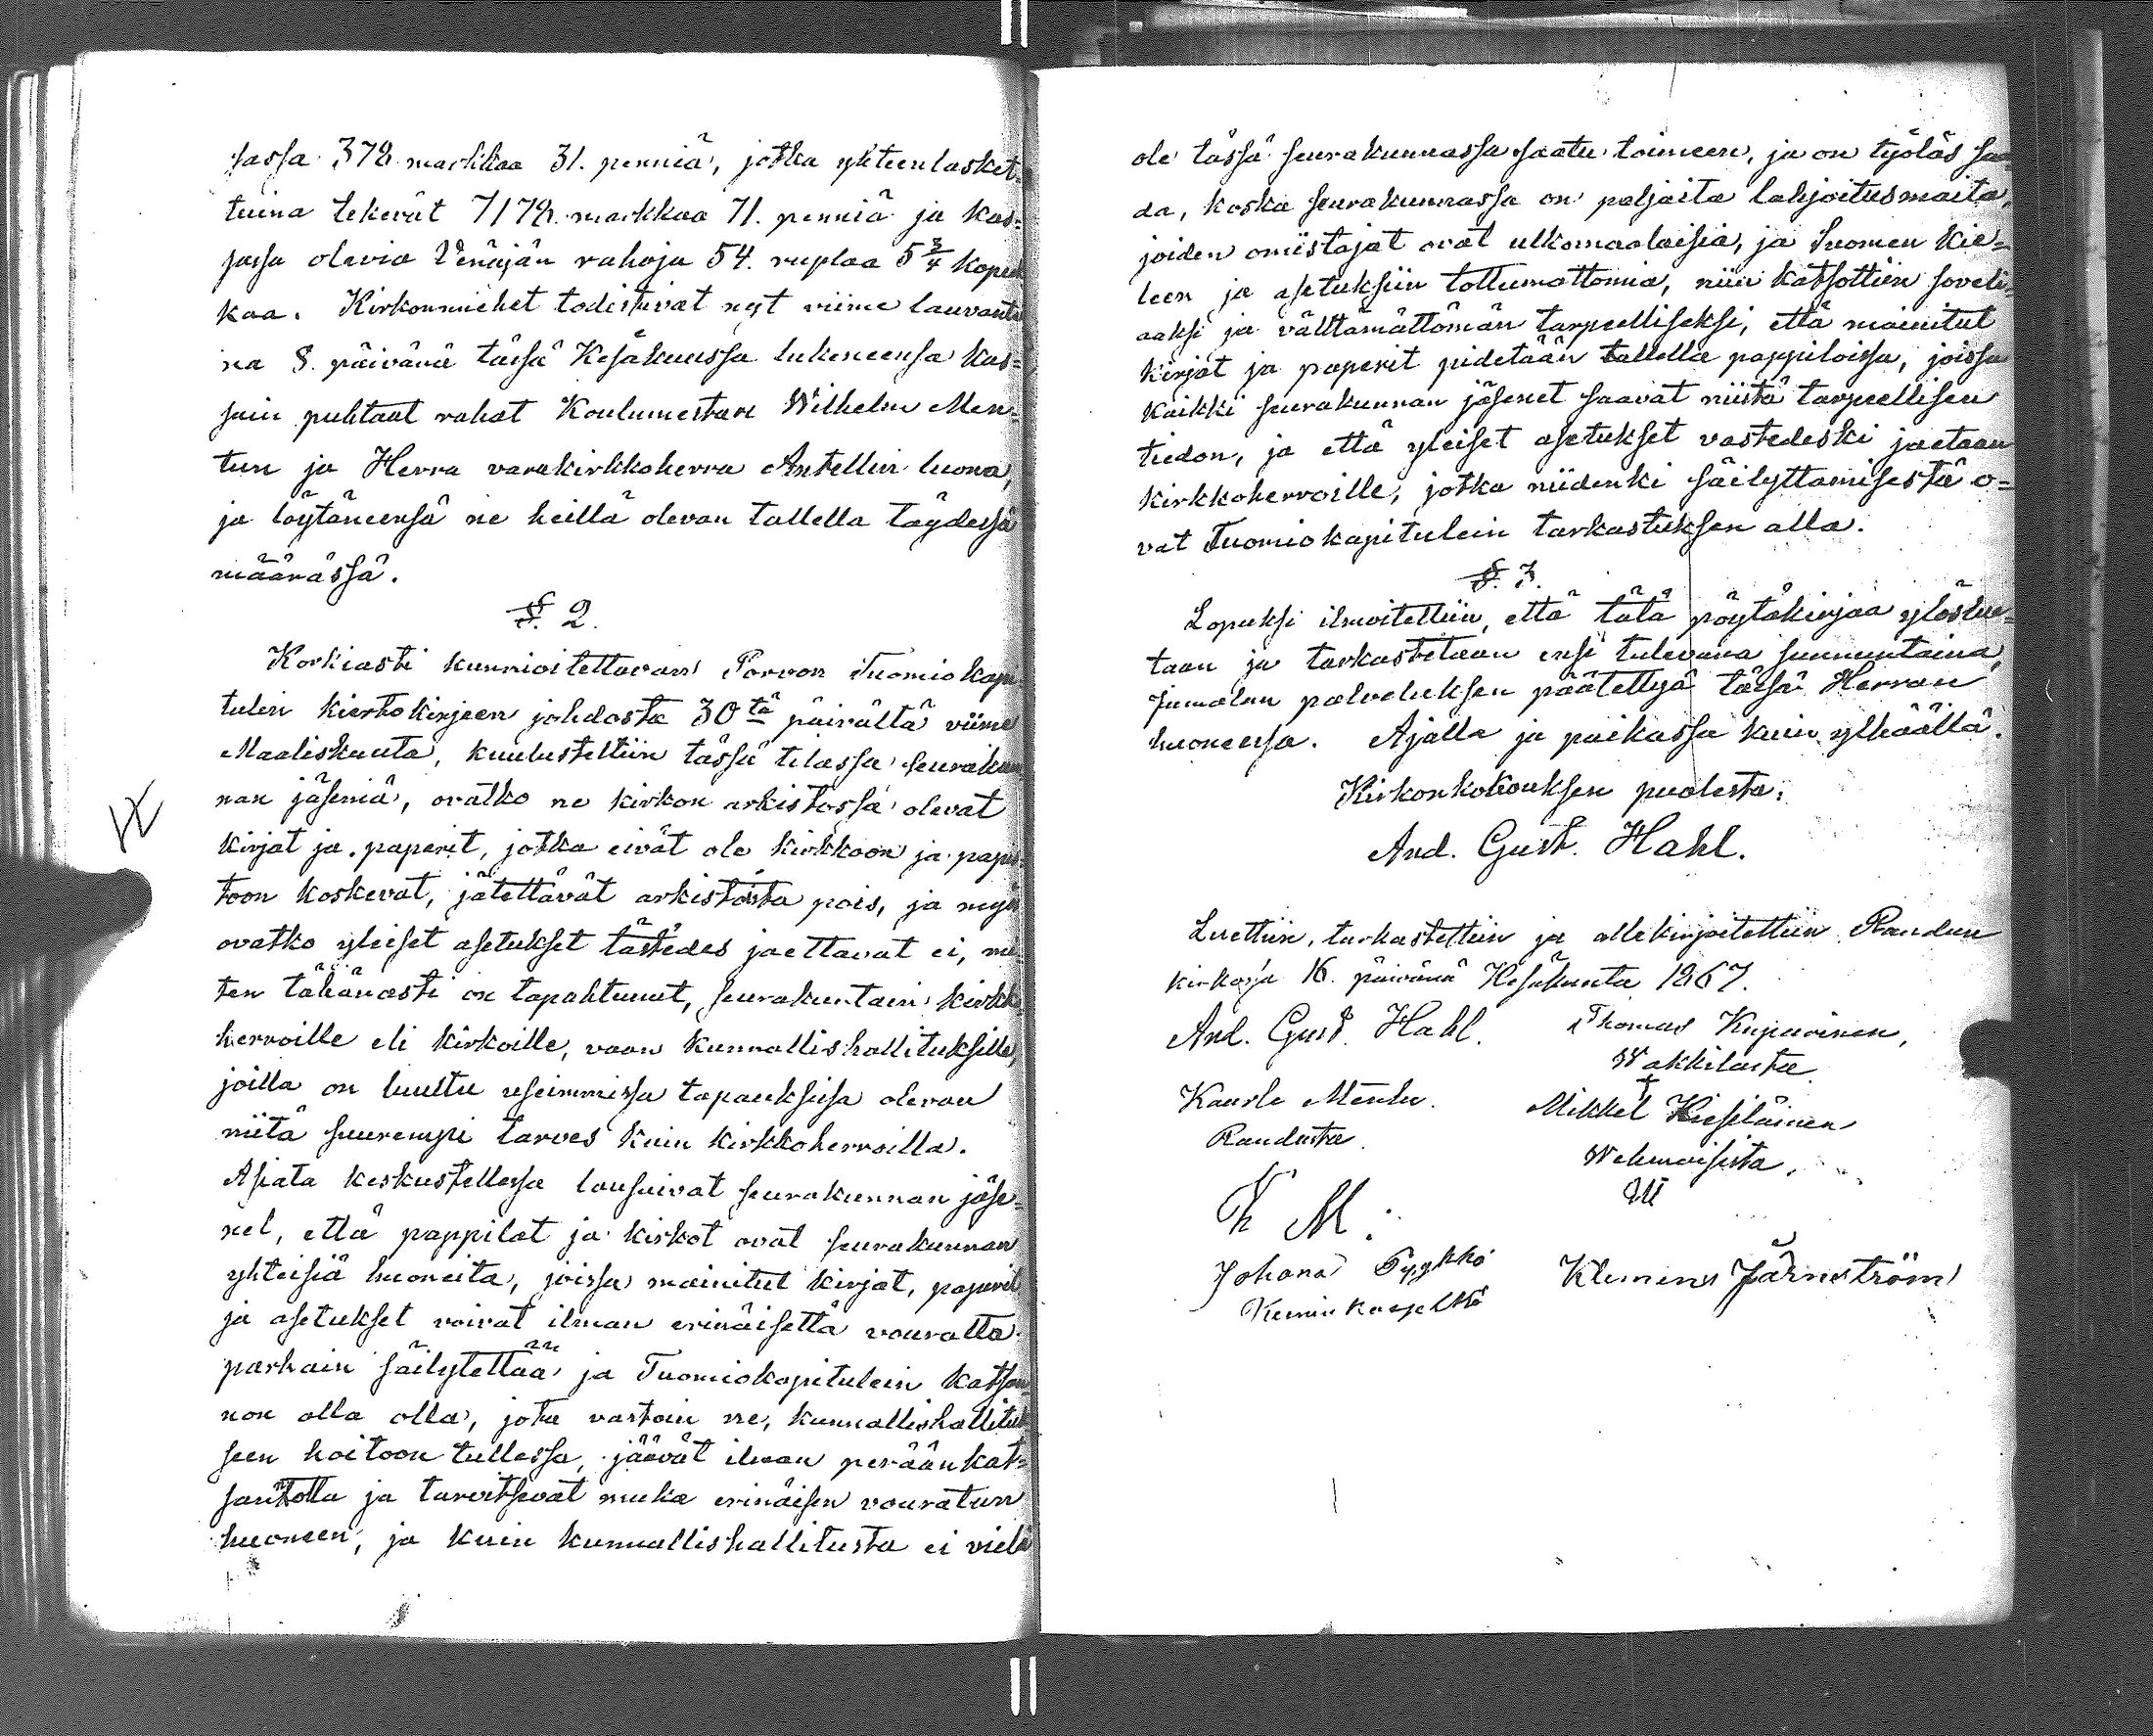 sassa 378. markkaa 31. penniä, jotka yhteenlasket=
tuina tekevät 7178. markkaa 71. penniä ja kas=
sassa olevia Venäjän rahoja 54. ruplaa 5 3/4 kopek
kaa. Kirkonmiehet todistivat nyt viime lauvanta
na 8. päivänä tässä Kesäkuussa lukeneensa kas=
sain puhtaat rahat Koulumestari Wilhelm Men=
tun ja Herra varakirkkoherra Antellin luona,
ja löytäneensä ne heillä olevan tallella täydessä
määrässä.
§. 2.
Korkiasti kunnioitettavan Porvon Tuomiokapi
tulin kiertokirjeen johdosta 30tä päivältä viime
Maaliskuuta, kuulusteltiin tässä tilassa seurakun
nan jäseniä, ovatko ne kirkon arkistossa olevat
kirjat ja paperit, jotka eivät ole kirkkoon ja papis
toon koskevat, jätettävät arkistosta pois, ja myös
ovatko yleiset asetukset tästedes jaettavat ei, mi
ten tähänasti on tapahtunut, seurakuntain kirkko
herroille eli kirkoille, vaan kunnallishallituksille,
joilla on luultu useimmissa tapauksissa olevan
niitä suurempi tarves kuin kirkkoherroilla.
Asiata keskustellessa lausuivat seurakunnan jäse=
net, että pappilat ja kirkot ovat seurakunnan
yhteisiä huoneita, joissa mainitut kirjat, paperit
ja asetukset voivat ilman erinäisettä vouratta
parhain säilytettää ja Tuomiokapitulein katson
non alla olla, jota vastoin ne, kunnallishallituk
seen hoitoon tullessa, jäävät ilman peräänkat=
santotta ja tarvitsevat muka erinäisen vouratun
huoneen, ja kuin kunnallishallitusta ei vielä
ole tässä seurakunnassa saatu toimeen, ja on työläs saa=
da, koska seurakunnassa on paljaita lahjoitusmaita,
joiden omistajat ovat ulkomaalaisia, ja Suomen kie=
leen ja asetuksiin tottumattomia, niin katsottiin soveli=
aaksi ja välttämättömän tarpeelliseksi, että mainitut
kirjat ja paperit pidetään tallella pappiloissa, joissa
kaikki seurakunnan jäsenet saavat niistä tarpeellisen
tiedon, ja että yleiset asetukset vastedeski jaetaan
kirkkoherroille, jotka niidenki säilyttämisestä o=
vat Tuomiokapitulein tarkastuksen alla.
§. 3.
Lopuksi ilmoitettiin, että tätä pöytäkirjaa ylöslue=
taan ja tarkastetaan ensi tulevana sunnuntaina,
Jumalan palveluksen päätettyä tässä Herran
huoneessa. Ajalla ja paikassa kuin ylhäällä.
Kirkonkokouksen puolesta:
And. Gust. Hahl.
Luettiin, tarkastettiin ja allekirjoitettiin Raudun
kirkossa 16. päivänä Kesäkuuta 1867.
And. Gust. Hahl. Thomas Kuparinen,
Wakkilasta
Kaarle Mentu. Mikkel Kieseläinen
Raudusta.
K M.
Johana Pyykkö Klemens Järnström